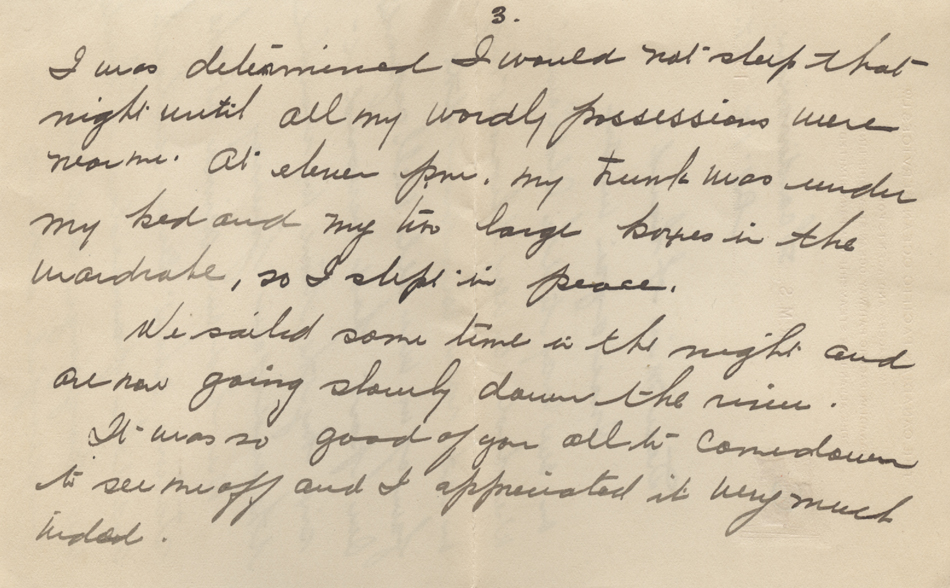 3.
I was determined I would not sleep that
night until all my wordly possessions were
near me. At eleven p.m. my trunk was under
my bed and my two large boxes in the
wardrobe, so I slept in peace.
We sailed some time in the night and
are now going slowly down the river.
It was so good of you all to come down
to see me off and I appreciated it very much
indeed.